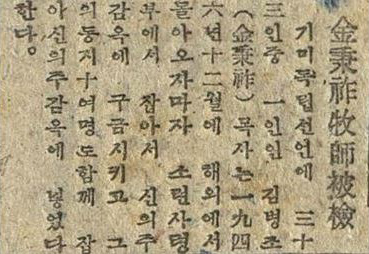 金秉祚牧師被檢
기미독립선언에 三十
三인중 一인인 김병조
(金秉祚)목사는 一九四
六년十二월에 해외에서
돌아오자마자 소련사령
부에서 잡아서 신의주
감옥에 구금시키고 그
의동지十여명도함께 잡
아신의주감옥에 넣었다
한다。